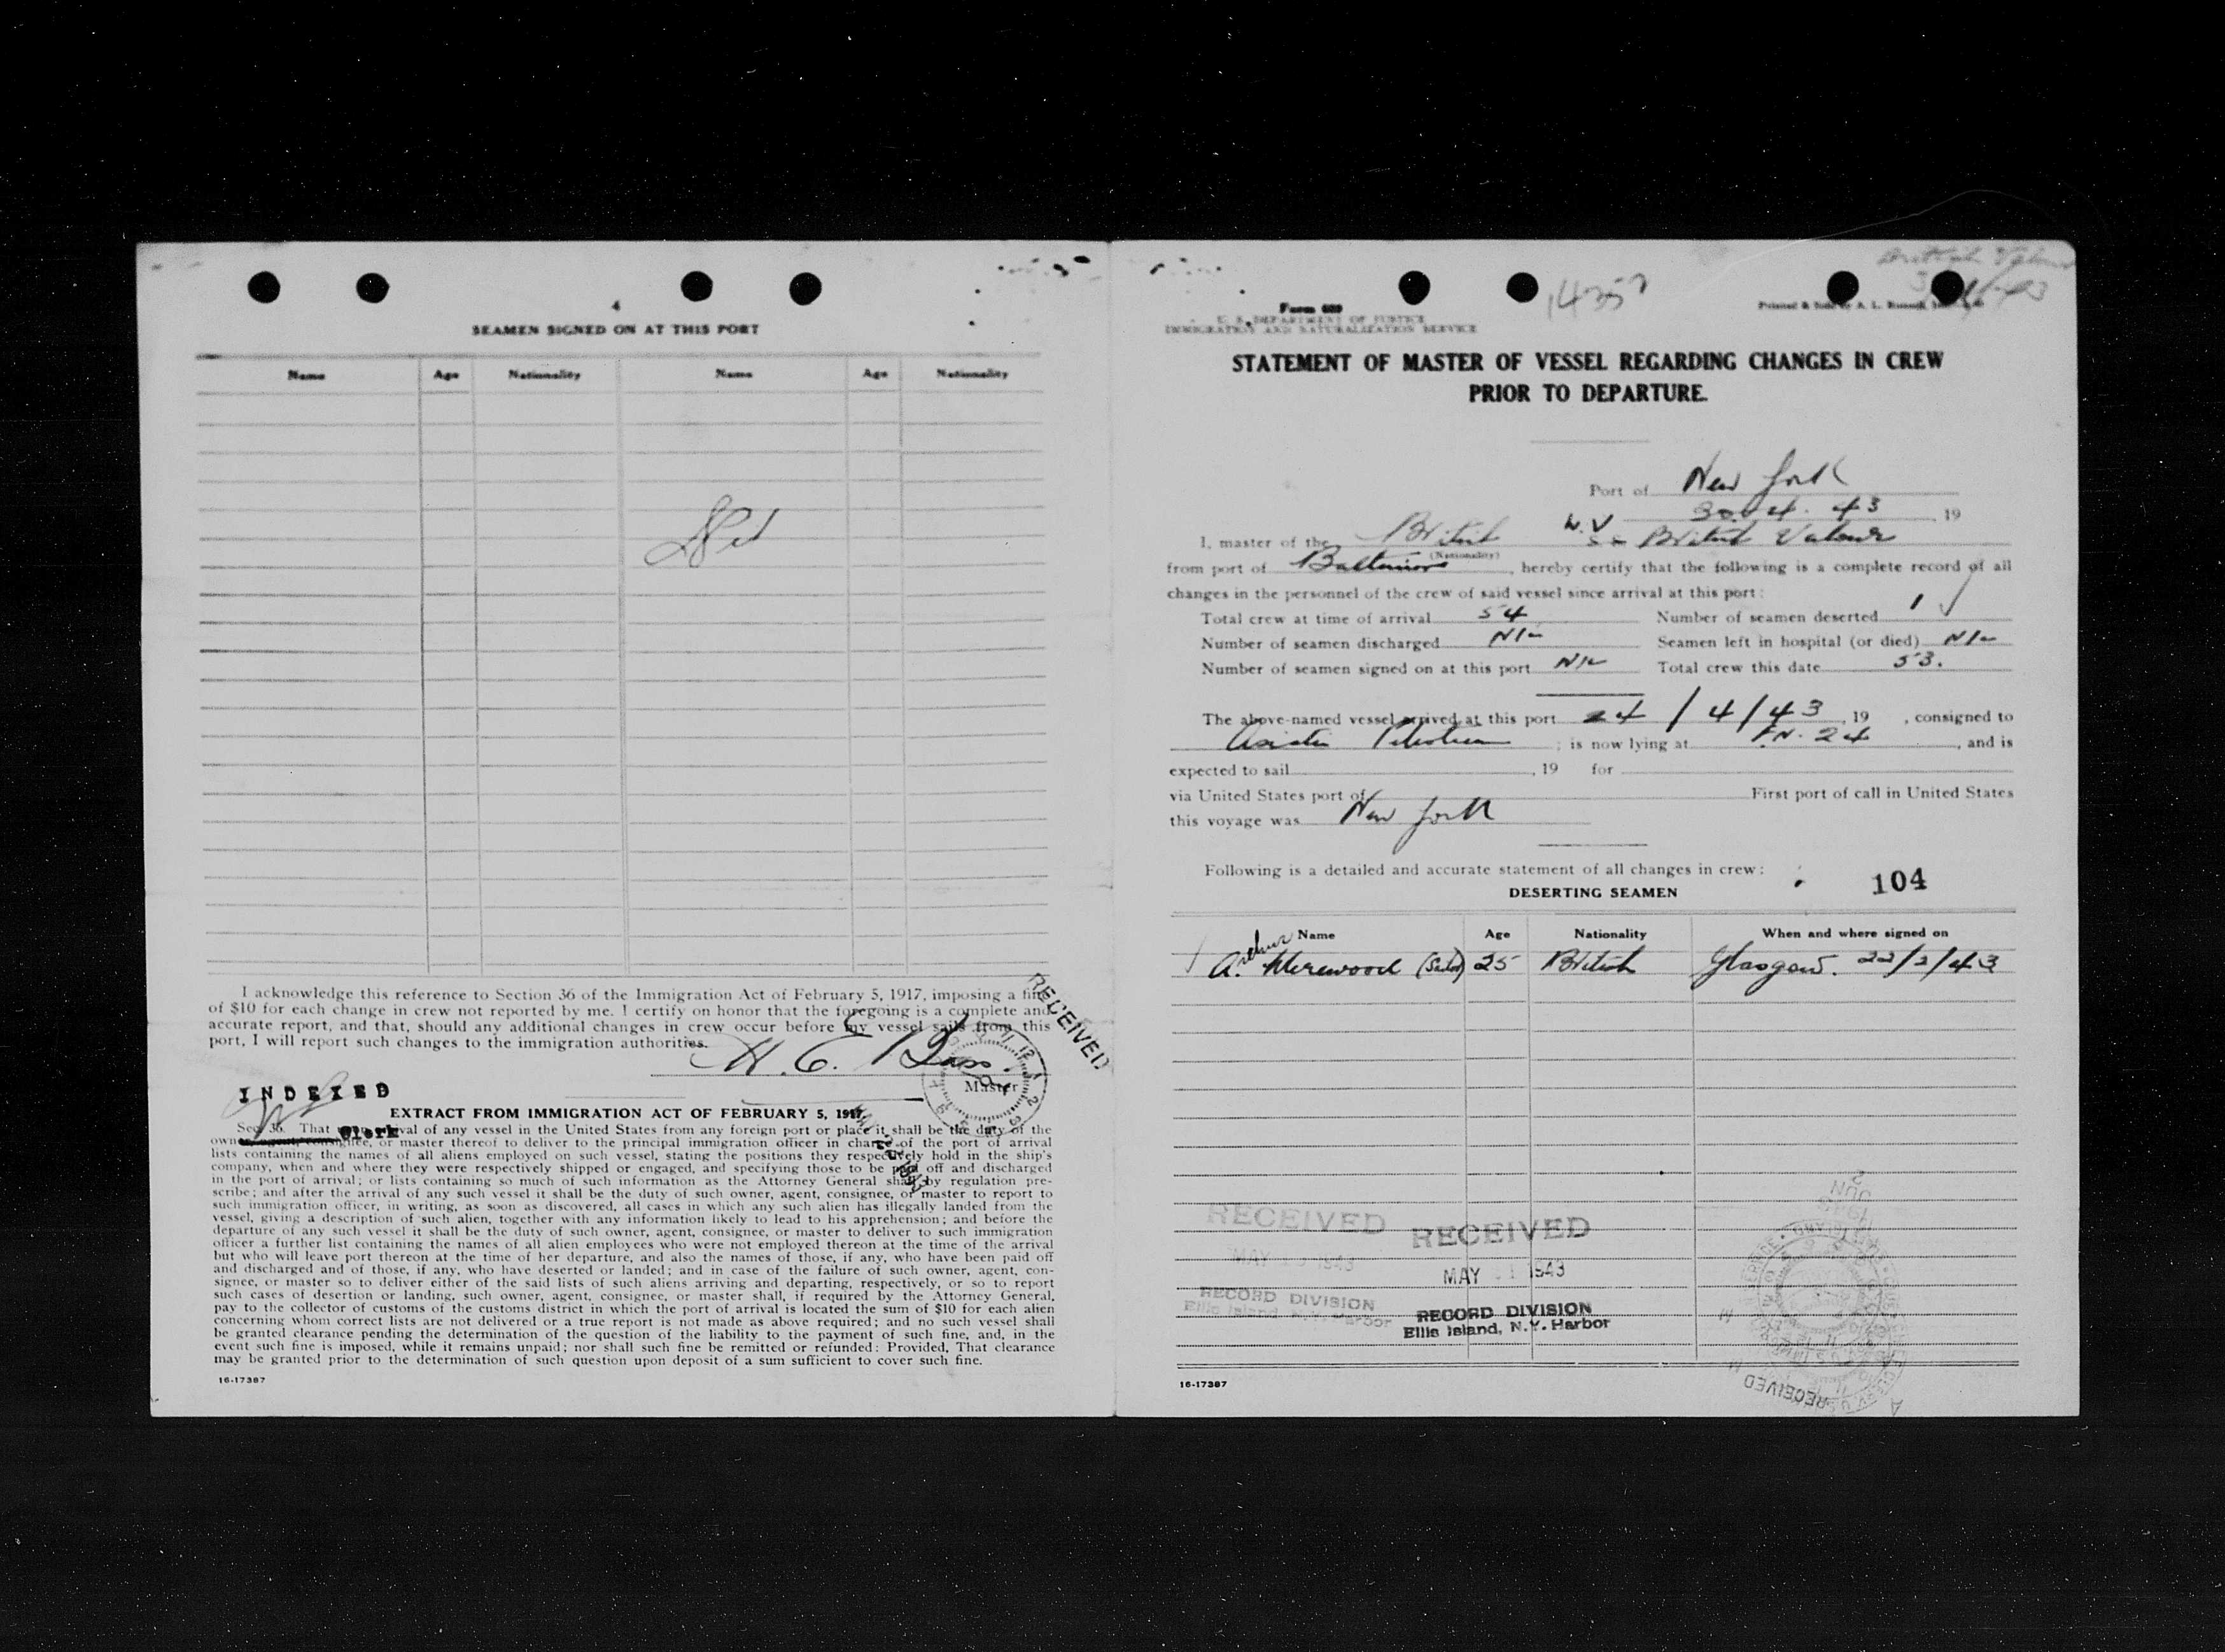 4
SEAMEN SIGNED ON AT THIS PORT
Name Age Nationality Name Age Nationality
Nil
I acknowledge this reference to Section 36 of the Immigration Act of February 5, 1917, imposing a fine
of $10 for each change in crew not reported by me. I certify on honor that the foregoing is a complete and
accurate report, and that, should any additional changes in crew occur before my vessel sails from this
port, I will report such changes to the immigration authorities.
H. E.
Master
RECEIVED
INDEXED
Clerk
EXTRACT FROM IMMIGRATION ACT OF FEBRUARY 5, 1917
Sec. 36. That arrival of any vessel in the United States from any foreign port or place it shall be the duty of the
owner, agent, consignee, or master thereof to deliver to the principal immigration officer in charge of the port of arrival
lists containing the names of all aliens employed on such vessel, stating the positions they respectively hold in the ship's
company, when and where they were respectively shipped or engaged, and specifying those to be paid off and discharged
in the port of arrival; or lists containing so much of such information as the Attorney General shall by regulation pre-
scribe; and after the arrival of any such vessel it shall be the duty of such owner, agent, consignee, or master to report to
such immigration officer, in writing, as soon as discovered, all cases in which any such alien has illegally landed from the
vessel, giving a description of such alien, together with any information likely to lead to his apprehension; and before the
departure of any such vessel it shall be the duty of such owner, agent, consignee, or master to deliver to such immigration
officer a further list containing the names of all alien employees who were not employed thereon at the time of the arrival
but who will leave port thereon at the time of her departure, and also the names of those, if any, who have been paid off
and discharged and of those, if any, who have deserted or landed; and in case of the failure of such owner, agent, con-
signee, or master so to deliver either of the said lists of such aliens arriving and departing, respectively, or so to report
such cases of desertion or landing, such owner, agent, consignee, or master shall, if required by the Attorney General,
pay to the collector of customs of the customs district in which the port of arrival is located the sum of $10 for each alien
concerning whom correct lists are not delivered or a true report is not made as above required; and no such vessel shall
be granted clearance pending the determination of the question of the liability to the payment of such fine, and, in the
event such fine is imposed, while it remains unpaid; nor shall such fine be remitted or refunded: Provided, That clearance
may be granted prior to the determination of such question upon deposit of a sum sufficient to cover such fine.
16-17387
British Valour
Form 689
U. S. DEPARTMENT OF JUSTICE
IMMIGRATION AND NATURALIZATION SERVICE
Printed & Sold by A. L.
STATEMENT OF MASTER OF VESSEL REGARDING CHANGES IN CREW
PRIOR TO DEPARTURE.
Port of New York
30. 4. 43, 19
I, master of the British M.V. British Valour
(Nationality)
from port of Baltimore, hereby certify that the following is a complete record of all
changes in the personnel of the crew of said vessel since arrival at this port:
Total crew at time of arrival 54 Number of seamen deserted 1
Number of seamen discharged NIL Seamen left in hospital (or died) NIL
Number of seamen signed on at this port NIL Total crew this date 53.
The above-named vessel arrived at this port 24/4/43, 19 , consigned to
Asiatic Petroleum; is now lying at 24, and is
expected to sail , 19 for
via United States port of First port of call in United States
this voyage was New York
Following is a detailed and accurate statement of all changes in crew:
DESERTING SEAMEN 104
Name Age Nationality When and where signed on
Arthur Merewood (Sailor) 25 British Glasgow. 22/2/43
RECEIVED RECEIVED
MAY 1943 MAY 1943
RECORD DIVISION RECORD DIVISION
Ellis Island, N.Y. Harbor Ellis Island, N.Y. Harbor
JUN 2
RECEIVED
16-17387